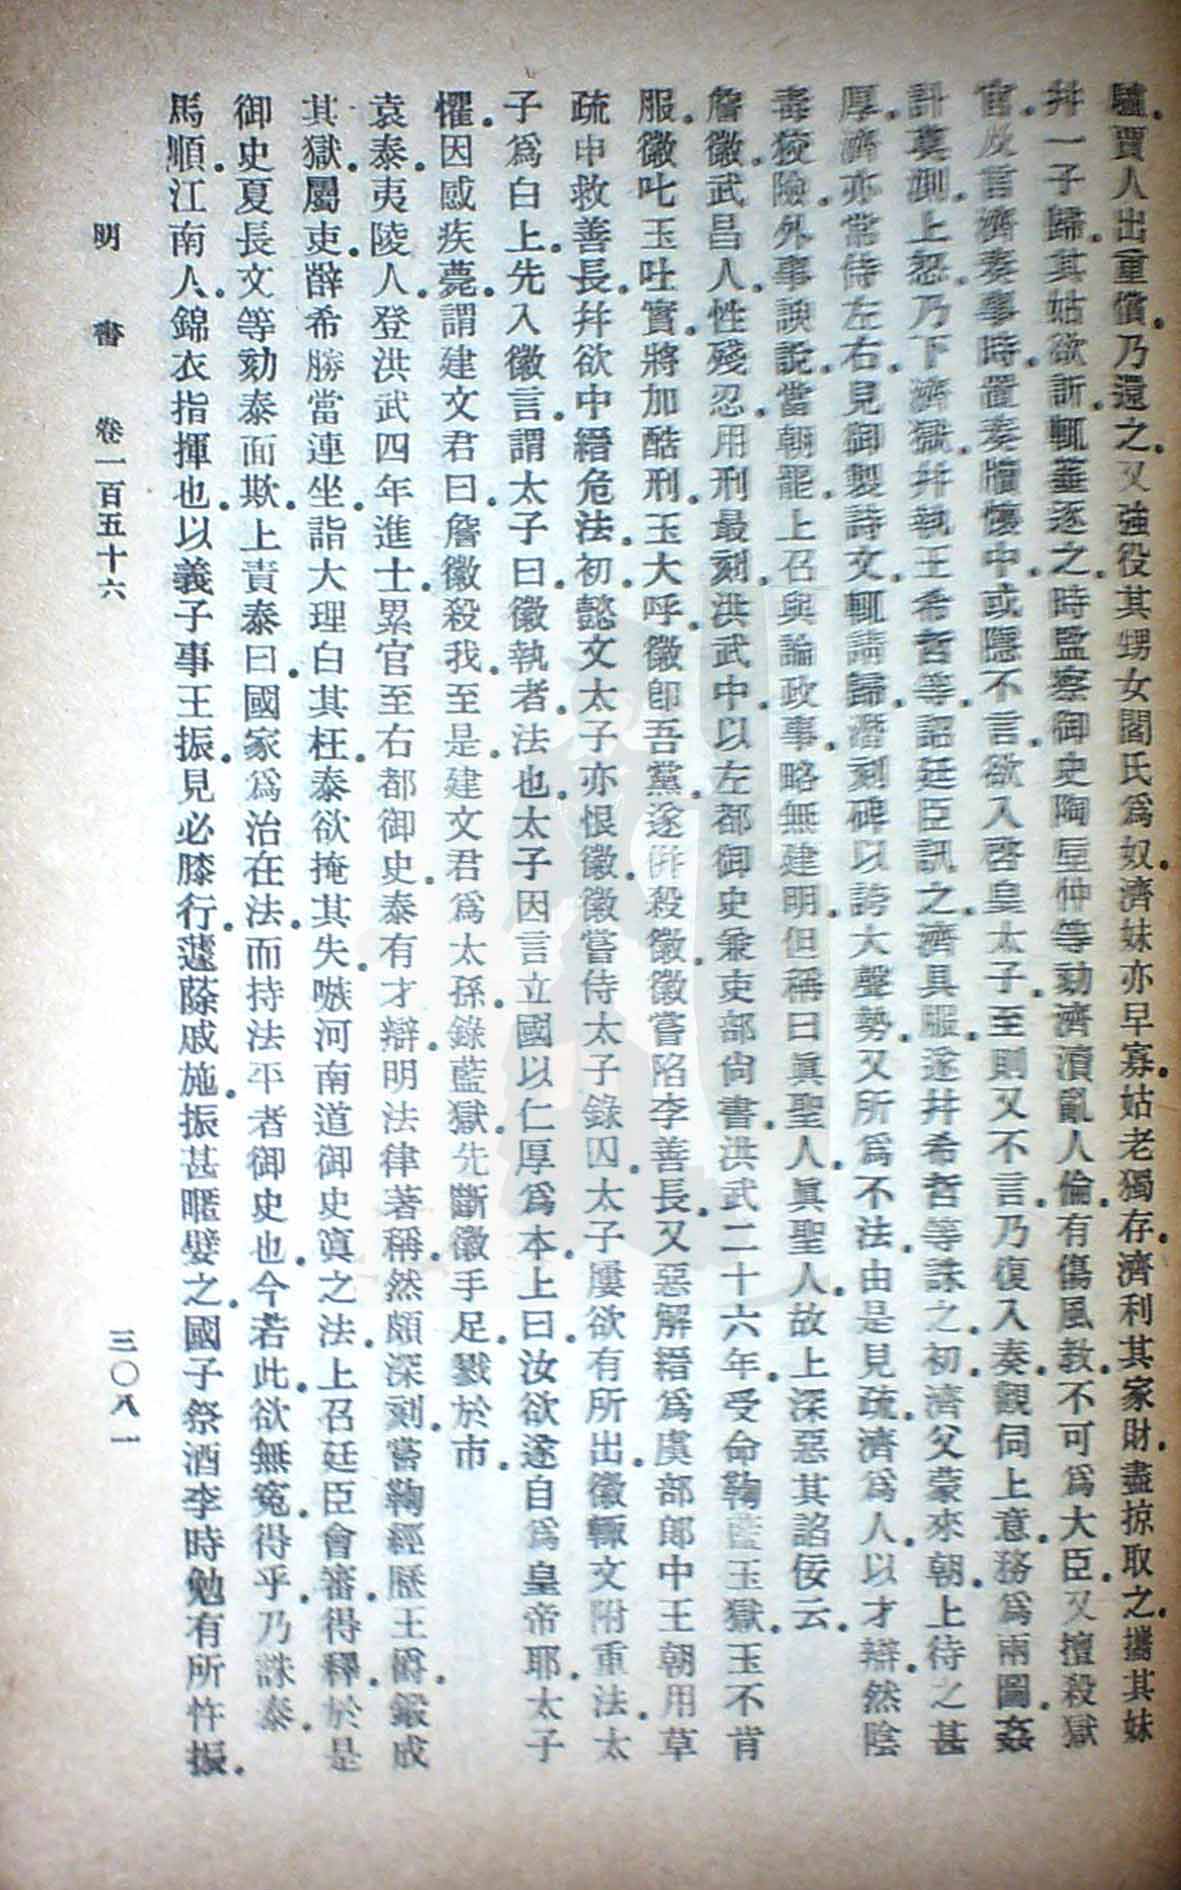 驢。賈人出重償。乃還之。又強役其甥女閻氏爲奴。濟妹亦早寡。姑老獨存。濟利其家財。盡掠取之。攜其妹
幷一子歸。其姑欲訴。輒箠逐之。時監察御史陶垕仲等劾濟瀆亂人倫。有傷風教。不可爲大臣。又擅殺獄
官。及言濟奏事時。置奏牘懷中。或隱不言。欲入啓皇太子。至則又不言。乃復入奏。觀伺上意。務爲兩圖。姦
計莫測。上怒。乃下濟獄。幷執王希哲等。詔廷臣訊之。濟具服。遂幷希哲等誅之。初濟父蒙來朝。上待之甚
厚。濟亦常侍左右。見御製詩文。輒請歸。潛刻碑以誇大聲勢。又所爲不法。由是見疏。濟爲人。以才辯。然陰
毒狡險。外事諛說。當朝罷。上召與論政事。略無建明。但稱曰眞聖人。眞聖人。故上深惡其諂佞云。
詹徽。武昌人。性殘忍。用刑最刻。洪武中。以左都御史兼吏部尙書。洪武二十六年。受命鞫藍玉獄。玉不肯
服。徽叱玉吐實。將加酷刑。玉大呼。徽卽吾黨。遂倂殺徽。徽嘗陷李善長。又惡解縉爲虞部郎中王朝用草
疏申救善長。幷欲中縉危法。初。懿文太子亦恨徽。徽嘗侍太子錄囚。太子屢欲有所出。徽輒文附重法。太
子爲白上。先入徽言。謂太子曰。徽執者。法也。太子因言立國以仁厚爲本。上曰。汝欲遂自爲皇帝耶。太子
懼。因感疾。薨。謂建文君曰。詹徽殺我。至是。建文君爲太孫。錄藍獄。先斷徽手足。戮於市。
袁泰。夷陵人。登洪武四年進士。累官至右都御史。泰有才辯。明法律著稱。然頗深刻。嘗鞫經歷王爵。鍛成
其獄。屬吏。辭希勝當連坐。詣大理白其枉。泰欲掩其失。嗾河南道御史寘之法。上召廷臣會審。得釋。於是
御史夏長文等劾泰面欺。上責泰曰。國家爲治在法。而持法平者御史也。今若此。欲無冤。得乎。乃誅泰。
馬順。江南人。錦衣指揮也。以義子事王振。見必膝行。蘧蒢戚施。振甚暱嬖之。國子祭酒李時勉有所忤振。
明書 卷一百五十六 三〇八一